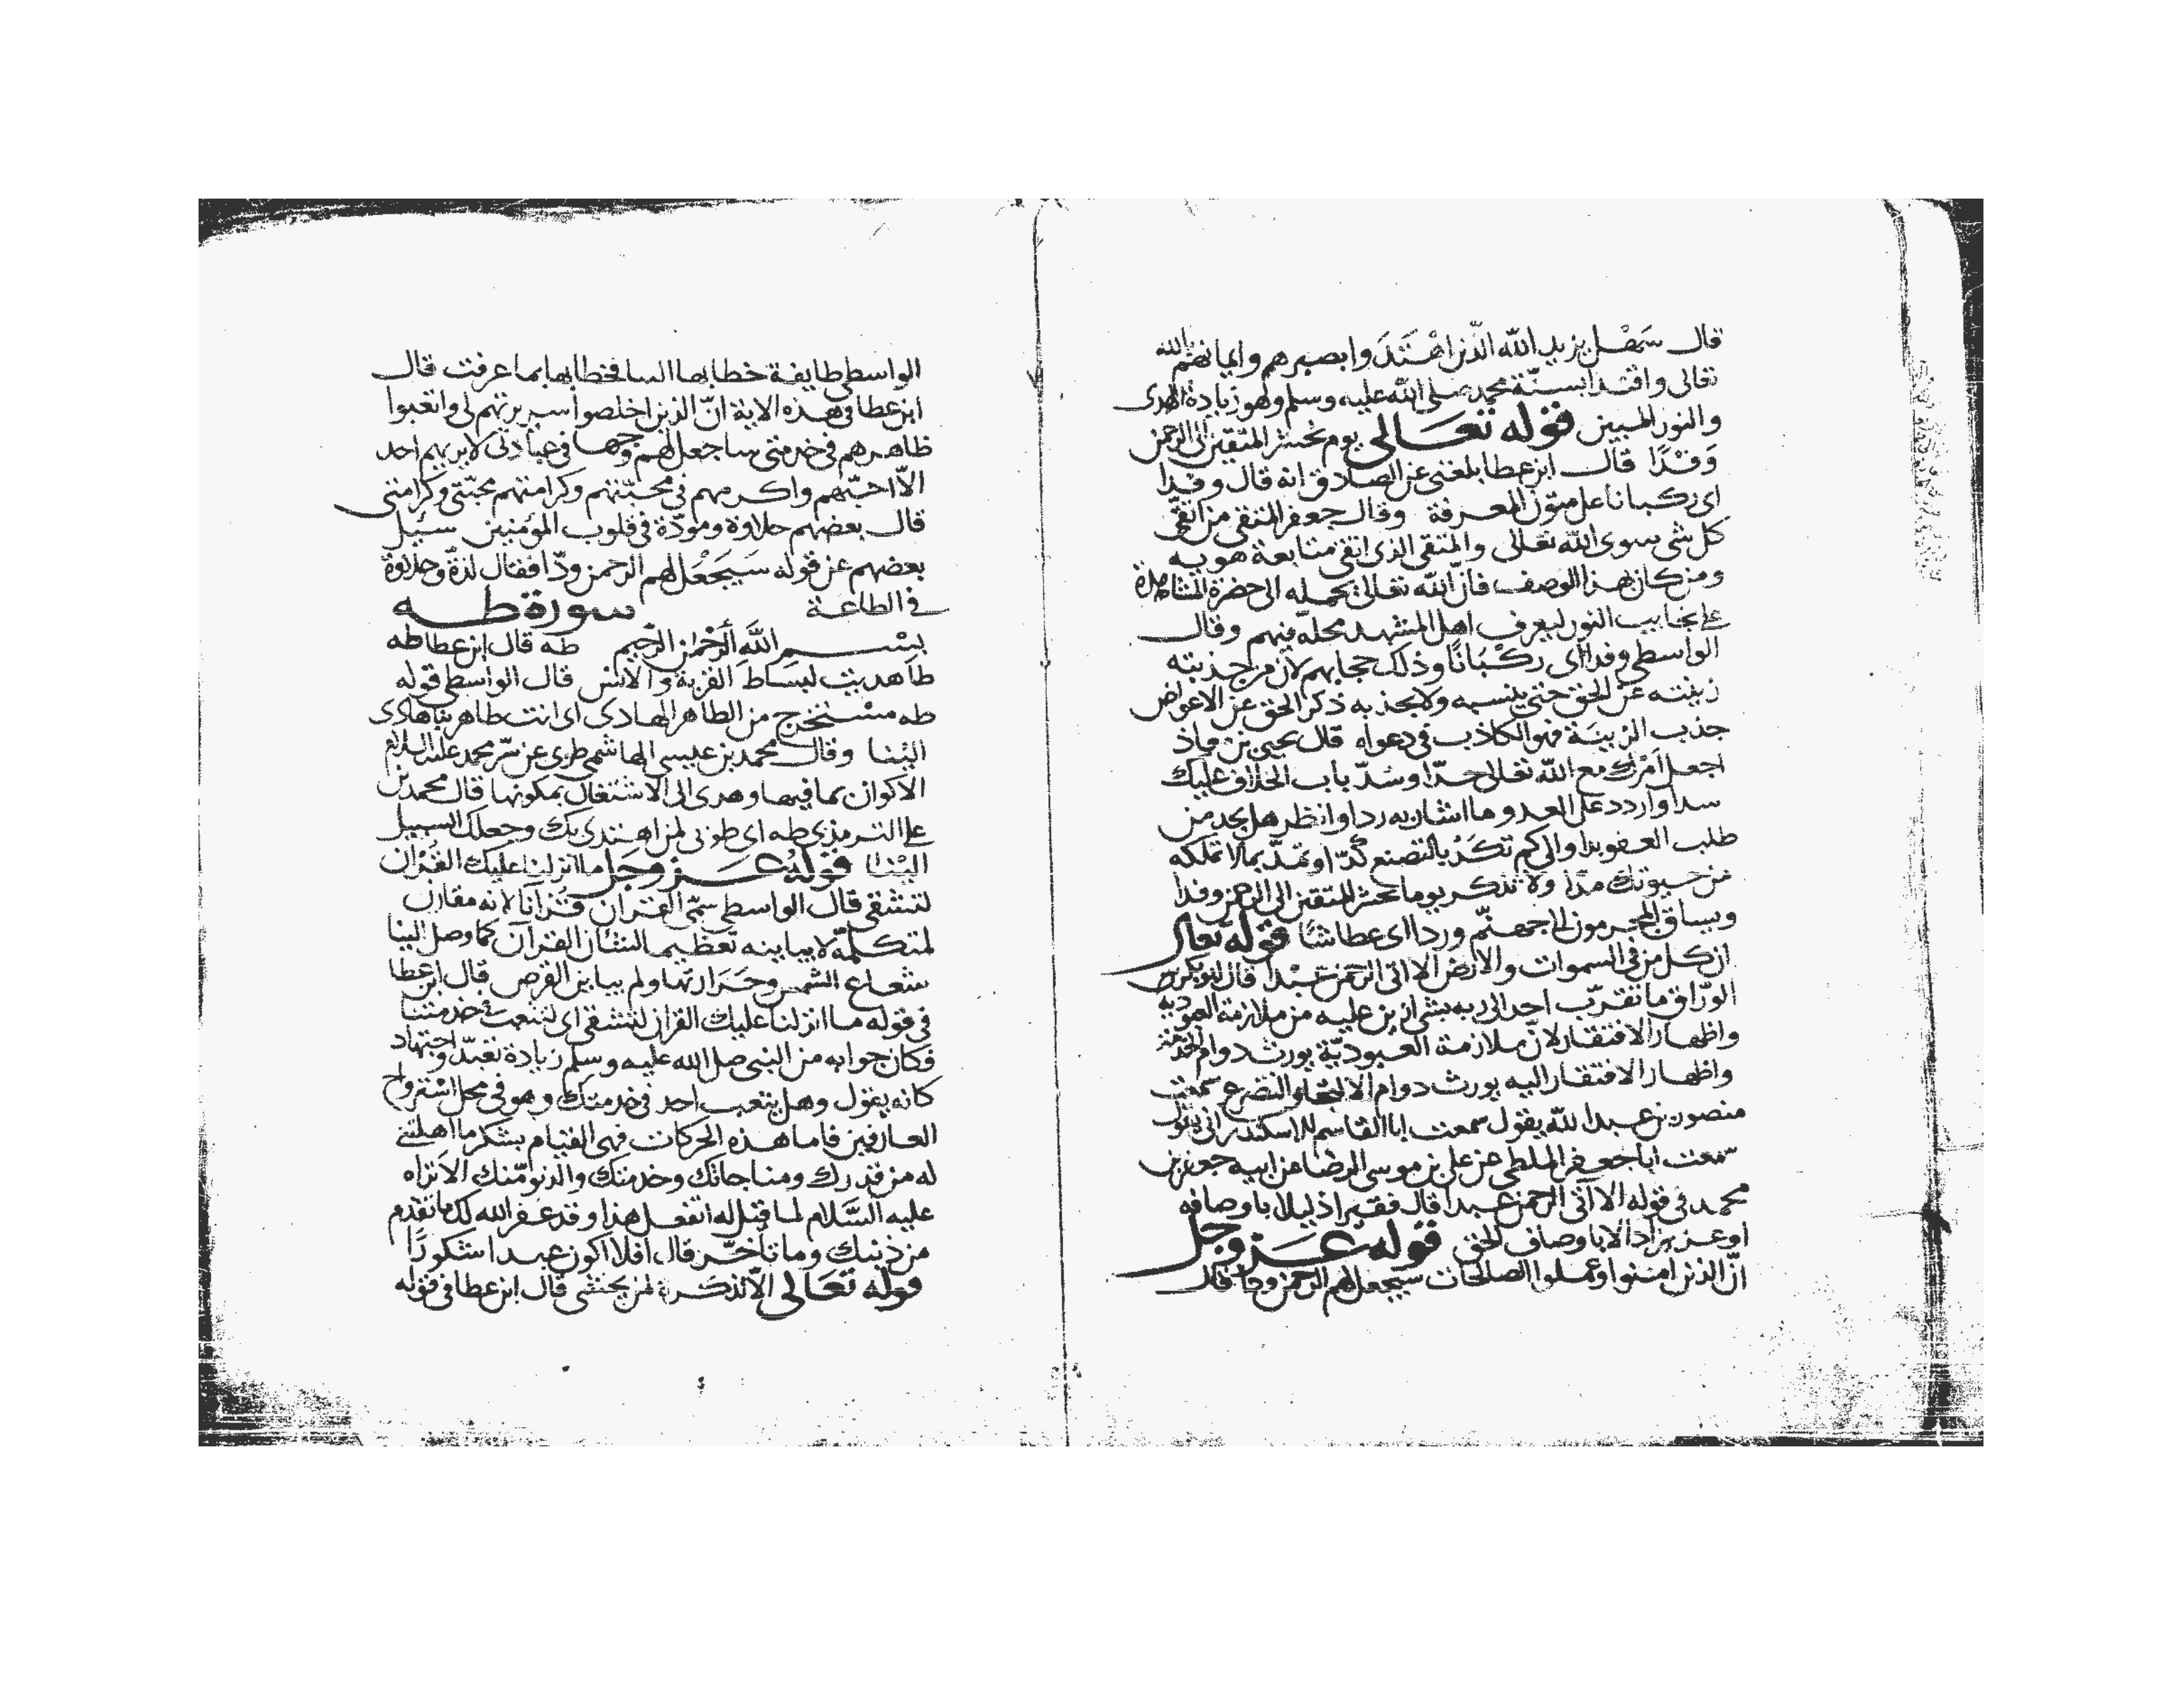 قال سهل يزيد الله الذين اهتدوا بصيرهم وايمانهم بالله
تعالى واقتدا بسنّة محمد صلى الله عليه وسلم وهو زيادة الهدى
والنور المبين قوله تعالى يوم نحشر المتقين الى الرحمن
وَفْدًا قال ابن عطا بلغنى عن الصادق انه قال وفدا
اى ركبانا على متون المعرفة وقال جعفر المتقى من اتقى
كل شى سوى الله تعالى والمتقى الذى اتقى متابعة هويه
ومن كان بهذا الوصف فان الله تعالى يحمله الى حضرة المشاهدة
على نجايب النور ليعرف اهل المشهد محله فيهم وقال
الواسطى وفدا اى ركْبَانًا وذلك حجابهم لان من جذبته
زينته عن الحق حتى ينسيه ولا يجذبه ذكر الحق عن الاعواض
جذب الزينة فهو الكاذب فى دعواه قال يحيى بن معاذ
اجعل امرك مع الله تعالى حدّا وسدّ باب الخلاف عليك
سدا واردد على العدو ما اشار به ردا وانظر هل يجد من
طلب العفو بدا والى كم تكدّ بالتصنع كدّا وتمدّ بما لا تملكه
من حيوتك مدّا ولا تذكر يوما نحشر المتقين الى الرحمن وفدا
ويساق المجرمون الى جهنّم وردا اى عطاشًا قوله تعالى
ان كل من فى السموات والارض الا اتى الرحمن عَبْدا قال ابو بكر
الورّاق ما تقرّب احد الى ربه بشى ازين عليه من ملازمة العبودية
واظهار الافتقار لانّ ملازمة العبوديّة يورث دوام الخدمة
واظهار الافتقار اليه يورث دوام الالتجا والتضرع سمعت
منصور بن عبد الله يقول سمعت ابا القاسم الاسكندرانى يقول
سمعت ابا جعفر الملطى عن على بن موسى الرضا عن ابيه جعفر بن
محمد فى قوله الا آتى الرحمن عبدا قال فقيرا ذليلا باوصافه
او عزيزا دالا باوصاف الحق قوله عَز وجل
انّ الذين امنوا وعملوا الصلحات سيجعل لهم الرحمن ودا قال
الواسطى طايفة خطابها فخطابها بما عرفت قال
ابن عطا فى هذه الاية انّ الذين اخلصوا سريرتهم لى واتعبوا
ظاهرهم فى خدمتى ساجعل لهم وجها فى عبادتى لا يريهم احد
الّا احبّهم واكرمهم فى محبّتهم وكرامتهم محبّتى وكرامتى
قال بعضهم حلاوة ومودّة فى قلوب المؤمنين سئيل
بعضهم عن قوله سَيَجْعَل لهم الرحمن ودّا فقال لذة وحلاوة
فى الطاعة سورة طه
بسم الله الرّحمٰن الرّحيم طه قال ابن عطا طه
طا هديت لبساط القربة والانس قال الواسطى قوله
طه مستخرج من الطاهر الهادى اى انت طاهر بنا هادى
الينا وقال محمد بن عيسى الهاشمى طوى عن سرّ محمد عليه السلام
الاكوان بما فيها وهدى الى الاشتغال بمكونها قال محمد بن
على الترمذى طه اى طوبى لمن اهتدى بك وجعلك السبيل
الينا قوله عَز وجَل ما انزلنا عليك القُرْان
لتشقى قال الواسطى سمّى القران قُرْآنا لانه مقارن
لمتكلّمه لا يباينه تعظيما لشان القرآن كما وصل الينا
شعاع الشمس وحَرَارتها ولم يباين القرص قال ابن عطا
فى قوله ما انزلنا عليك القران لتشقى اى لتتعب فى خدمتنا
فكان جوابه من النبى صلى الله عليه وسلم زيادة تعبّد واجتهاد
كانه يقول وهل يتعب احد فى خدمتك وهو فى محل استرواح
العارفين فاما هذه الحركات فهى القيام بشكر ما اهلتنى
له من قدرك ومناجاتك وخدمتك والدنو منك الا تراه
عليه السَّلام لما قيل له اتفعل هذا وقد غفر الله لك ما تقدم
من ذنبك وما تأخّر قال افلا اكون عبدا شكورًا
قوله تعَالى الّا تذكرة لمن يخشى قال ابن عطا فى قوله